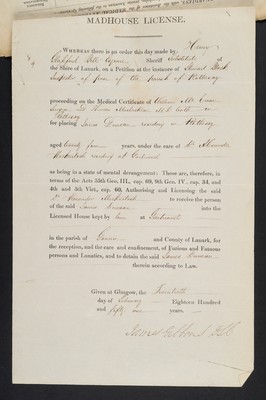 MADHOUSE LICENSE.
WHEREAS there is an order this day made by Henry
Glassford Bell Esquire Sheriff Substitute of
the Shire of Lanark, on a Petition at the instance of
Inspector of poor of the parish of Rothesay
proceeding on the Medical Certificate of William
and
Rothesay
for placing James Duncan residing in Rothesay
aged twenty four years, under the care of Dr Alexander
Mackintosh residing at Gartnavel
as being in a state of mental derangement: These are, therefore, in
terms of the Acts 55th Geo. III., cap. 69, 9th Geo. IV., cap. 34, and
4th and 5th Vict., cap. 60, Authorising and Licensing the said
Dr Alexander Mackintosh to receive the person
of the said James Duncan into the
Licensed House kept by him at Gartnavel
in the parish of Govan and County of Lanark, for
the reception, and the care and confinement, of Furious and Fatuous
persons and Lunatics, and to detain the said James Duncan
therein according to Law.
Given at Glasgow, the Twentieth
day of Eighteen Hundred
and fifty years.